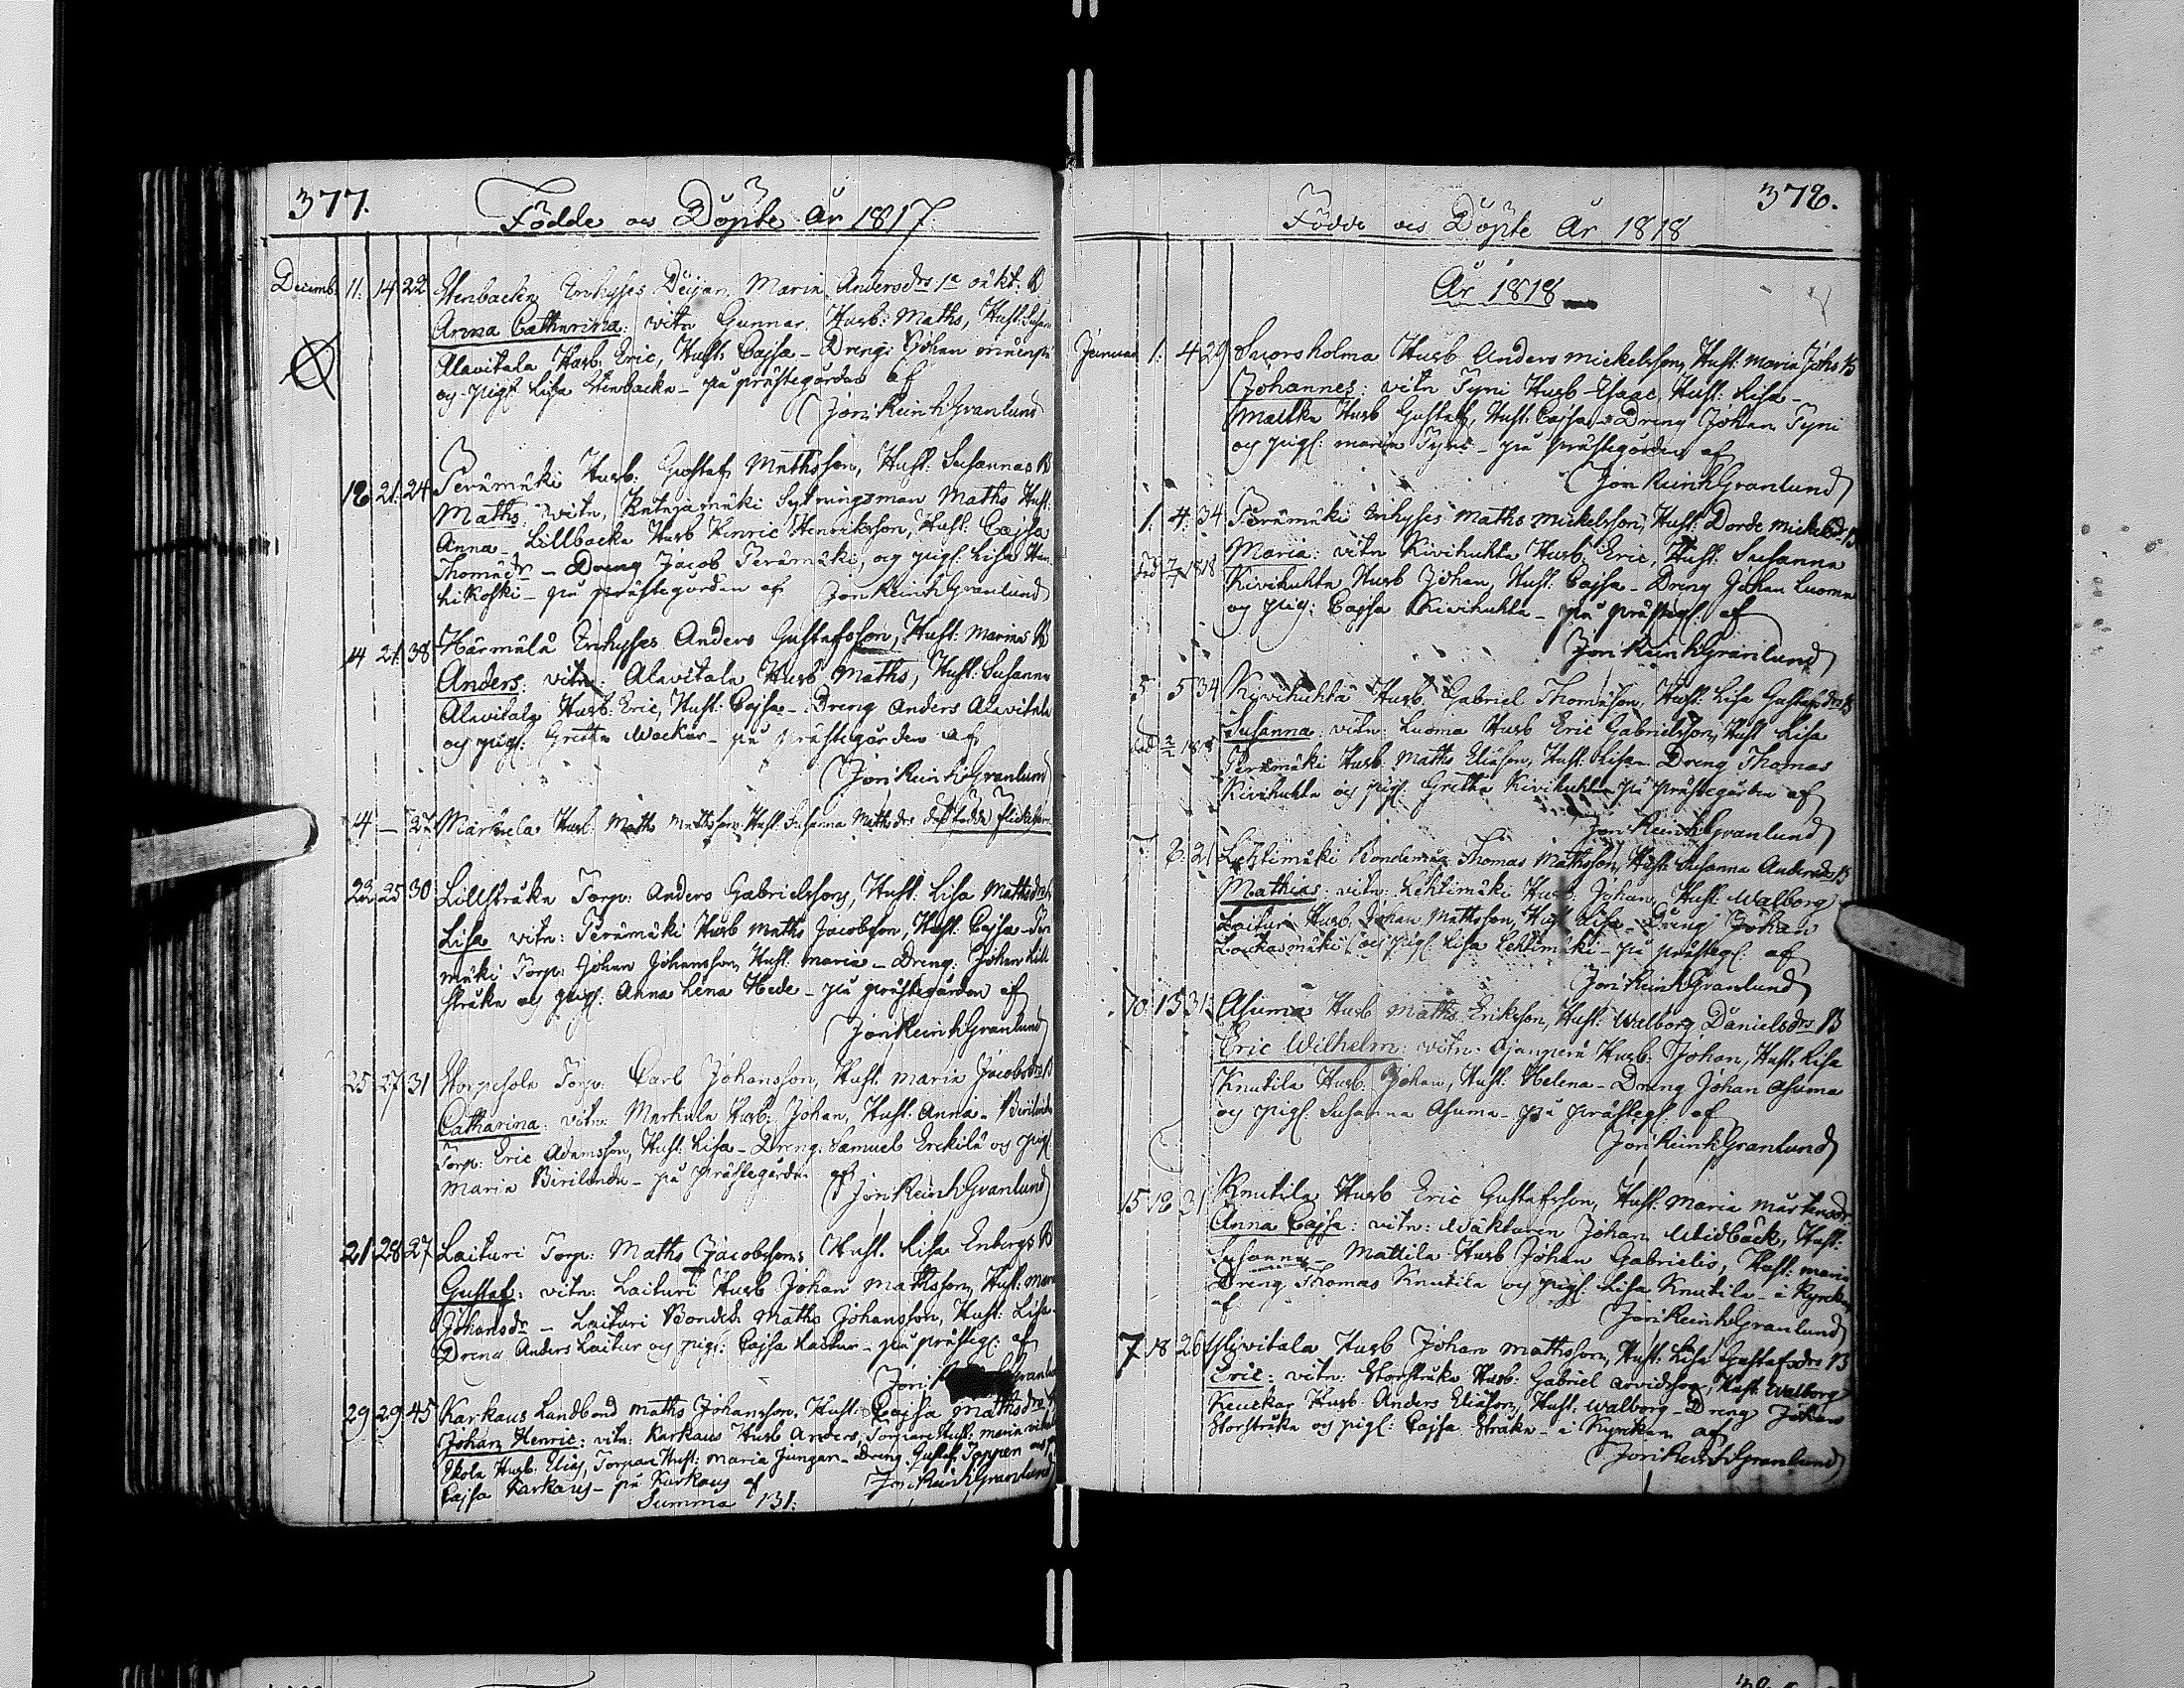 377.
Födde och Döpte År 1817.
Decemb. 11. 14 22 Stenbacka Inhyses Deijan Maria Andersdrs 1a oäkt. B
Anna Catharina: vitn Gunnar Husb: Maths, Hust: Susan
Alavitala Husb: Eric, Hust: Cajsa – Dreng: Johan
och pig: Lisa Stenbacka – på prästegården af
Jon: Reinh Granlund
18 21. 24 Perämäki Husb: Gustaf Mathsson, Hust: Susannas B
Maths: vitn. Katajamäki Sytningsman Maths Hust:
Anna – Lillbacka Husb Henric Henriksson, Hust: Cajsa
Thomædr – Dreng Jacob Perämäki, och pig: Lisa Han
hikoski – på prästegården af Jon Reinh Granlund
14 21. 38 Härmälä Inhyses Anders Gustafsson, Hust: Marias B
Anders: vitn: Alavitala Husb Maths, Hust: Susanna
Alavitala Husb: Eric, Hust: Cajsa – Dreng Anders Alavitala
och pig: Greta Wacker – på prästegården af
Jon: Reinh Granlund
4 — 27 Markula Husb: Maths Mathsson Hust: Susanna Mathsdrs dödfödda flickebarn
22 25 30 Lillstråka Torp: Anders Gabrielsson, Hust: Lisa Mathsdrs B
Lisa vitn: Perämäki Husb Maths Jacobsson, Hust: Cajsa – Perä
mäki Torp: Johan Johansson, Hust: Maria – Dreng: Johan Lill
stråka och pig: Anna Lena Hede – på prästegården af
Jon: Reinh Granlund
25 27 31 Torp: Carl Johansson, Hust: Maria Jacobsdrs B
Catharina: vitn: Markula Husb: Johan, Hust: Anna – Birilunda
Torp: Eric Adamsson, Hust: Lisa – Dreng: Samuel Erckilä och pig:
Maria Birilunda – på prästegården af Jon: Reinh Granlund
21 28 27 Laituri Torp: Maths Jacobsson, Hust. Lisa Enbergs B
Gustaf: vitn: Laituri Husb Johan Mathsson, Hust: Maria
Johansdr – Laituri Bondes: Maths Johansson, Hust: Lisa –
Dreng Anders Laituri och pig: Cajsa Laituri – på prästeg: af
Jon: Granlund
29 29 45 Karkaus Landbond Maths Johansson, Hust: Cajsa Mathsdrs
Johan Henric: vitn: Karkaus Husb Anders, Torpare Hust: Maria
Skola Husb. Elias, Torpare Hust: Maria Jungar – Dreng Gustaf Toppen och p
Cajsa Karkaus – på Karkaus af Jon Reinh Granlund
Summa 131:
378.
Födde och Döpte År 1818
År 1818
Januari 1. 4 29 Snorsholma Husb Anders Mickelsson, Hust: Maria Johs B
Johannes: vitn Tyni Husb Isaac, Hust: Lisa –
Mattka Husb Gustaf, Hust: Cajsa – Dreng Johan Tyni
och pig: Maria Tyni – på prästegården af
Jon Reinh Granlund
1. 4. 34 Perämäki Inhyses Maths Mickelsson, Hust: Dorde Mickelsdr B
Maria: vitn Kivihuhta Husb: Eric, Hust: Susanna
död 1818 Kivihuhta Husb Johan, Hust: Cajsa – Dreng Johan Luoma
och pig: Cajsa Kivihuhta – på prästeg: af
Jon Reinh Granlund
5 5 34 Kivihuhta Husb. Gabriel Thomasson, Hust: Lisa Gustafsdrs B
Susanna: vitn: Luoma Husb Eric Gabrielsson, Hust Lisa
död 1818 Perämäki Husb: Maths Eliasson, Hust: Lisa – Dreng Thomas
Kivihuhta och pig: Gretha Kivihuhta – på prästegården af
Jon Reinh Granlund
7. 8. 21 Lehtimäki Bondeman Thomas Mathsson, Hust: Susanna Andersdrs B
Mathias: vitn: Lehtimäki Husb: Johan, Hust: Walborg
Laituri Husb: Johan Mathsson, Hust: Lisa – Dreng Johan
Laukasmäki och pig: Lisa Lehtimäki – på prästeg: af
Jon: Reinh Granlund
10. 13 31. Asuma Husb Maths Eriksson, Hust: Walborg Danielsdrs B
Eric Wilhelm: vitn: Ajanperä Husb: Johan, Hust: Lisa
Knutila Husb: Johan, Hust: Helena – Dreng Johan Asuma
och pig: Susanna Asuma – på prästeg: af
Jon: Reinh Granlund
15 18 31 Knutila Husb Eric Gustafsson, Hust: Maria Mårtensdr:
Anna Cajsa: vitn: Wäktaren Johan Widbäck, Hust:
Susanna – Mattila Husb Johan Gabrielss, Hust: Maria
Dreng Thomas Knutila och pig: Lisa Knutila – i Kyrck
af Jon: Reinh Granlund
7 18 26 Ylivitala Husb Johan Mathsson, Hust: Lisa Gustafsdrs B
Eric: vitn: Storstråka Husb: Gabriel Arvidsson, Hust: Walborg
Keuckar Husb: Anders Eliasson, Hust: Walborg – Dreng Johan
Storstråka och pig: Cajsa Stråka – i Kyrckan af
Jon: Reinh Granlund